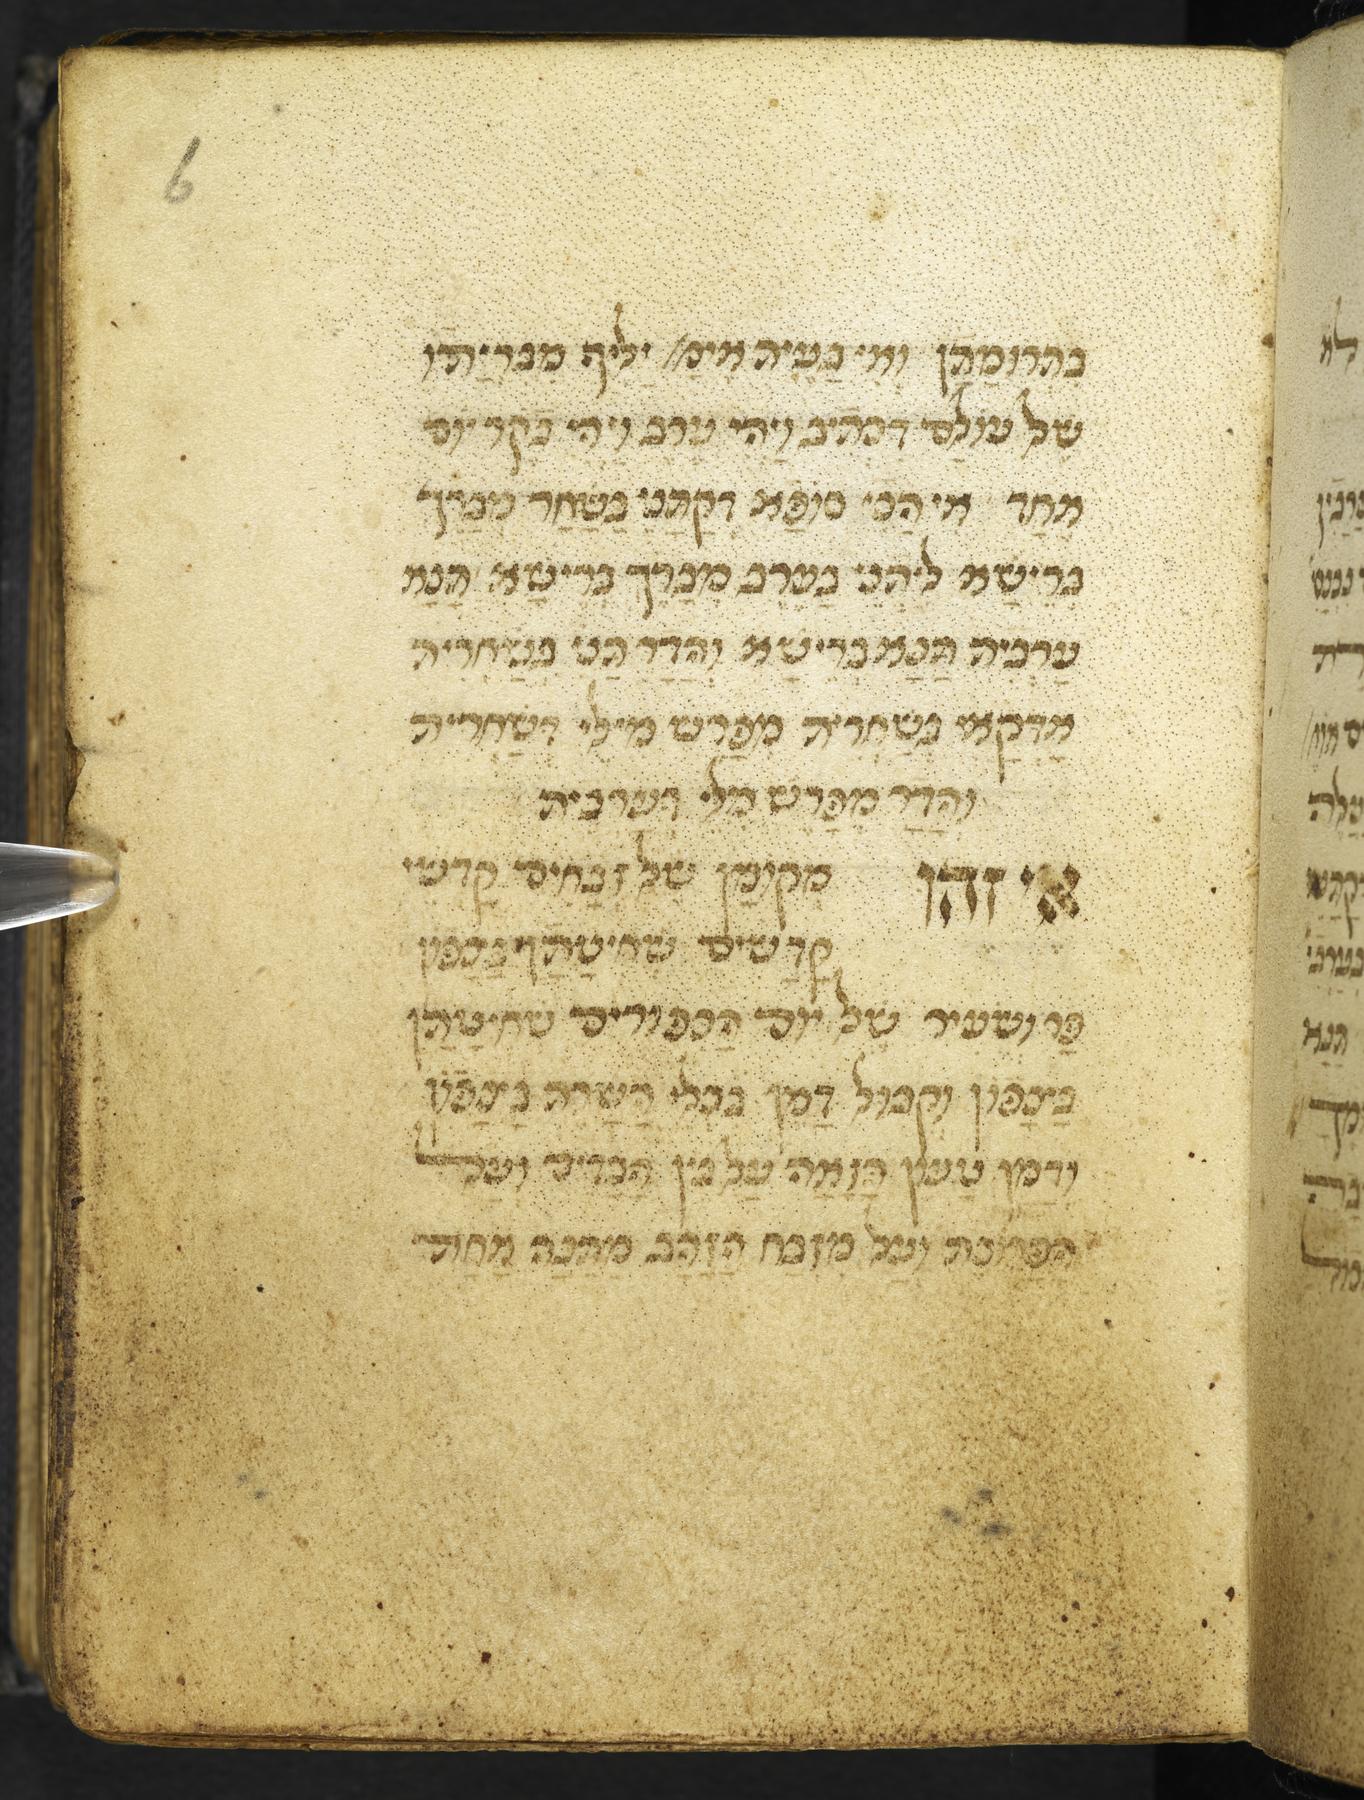 6
בתרומתן ואי בעית אימ׳ יליף מברייתו
של עולם דכתיב ויהי ערב ויהי בקר יום
אחד אי הכי סיפא דקתני בשחר מברך
ברישא ליתני בערב מברך ברישא תנא
ערבית תנא ברישא והדר תני בשחרית
אדקאי בשחרית מפרש מילי דשחרית
והדר מפרש מלי דערבית
אי זהו מקומן של זבחים קדשי
קדשים שחיטתן בצפון
פר ושעיר של יום הכפורים שחיטתן
בצפון וקבול דמן בכלי השרת בצפון
ודמן טעון הזאה על בין הבדים ועל
הפרוכת ועל מזבח הזהב מתנה אחת